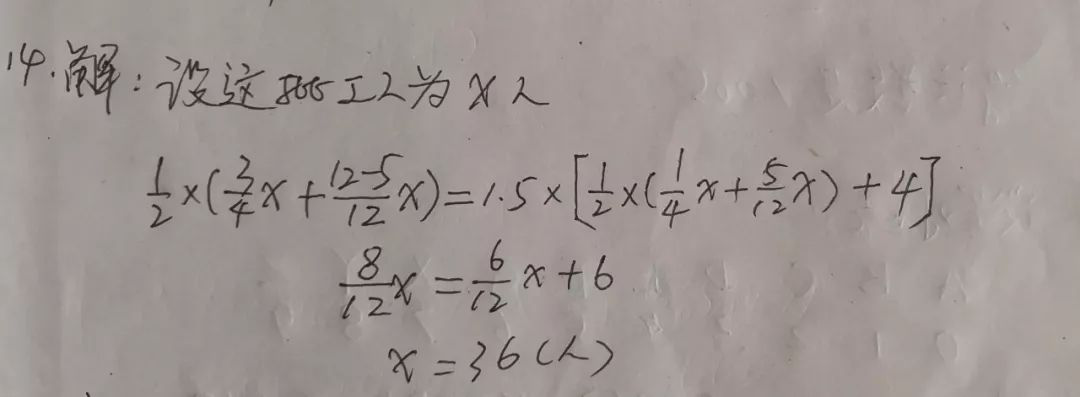 14.解:设这群工人为x人
1/2×(3/4x+(12-5)/12x)=1.5×[1/2×(1/4x+5/12x)+4]
8/12x=6/12x+6
x=36(人)